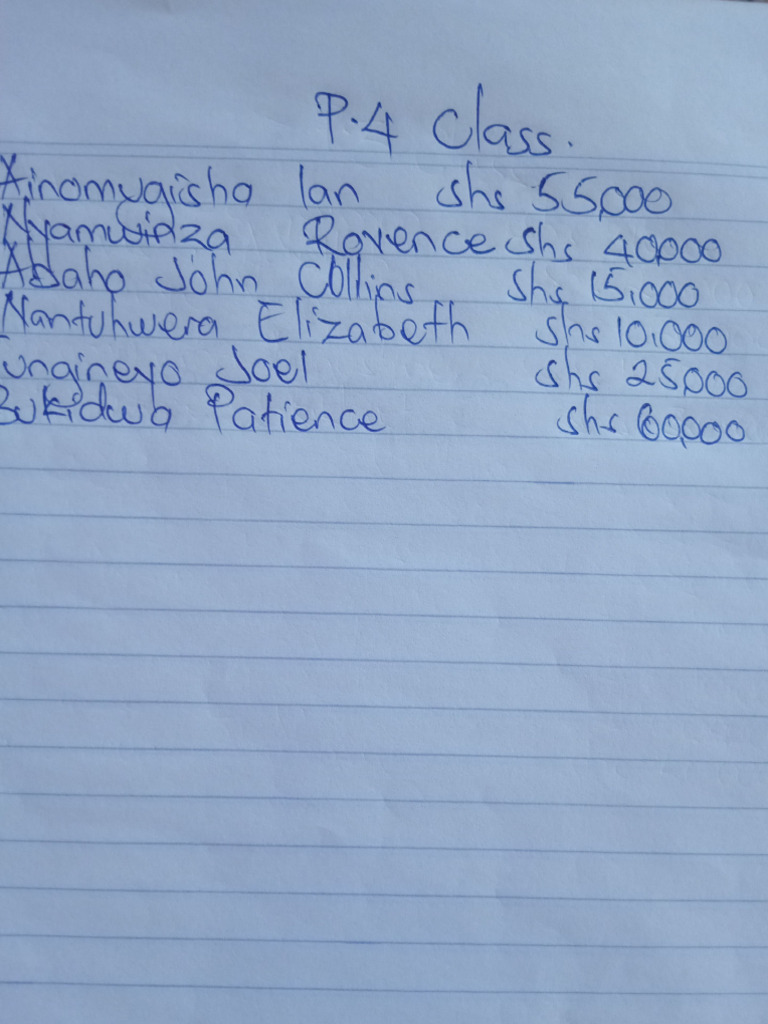 P.4 Class.
Ainomugisha Ian shs 55,000
Nyamwiza Rovence shs 40,000
Abaho John Collins shs 15,000
Nantuhwera Elizabeth shs 10,000
ungineyo Joel shs 25,000
Patience shs 60,000